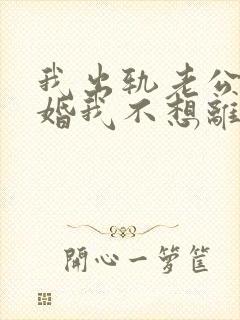 我出轨老公
婚我不想離
開心一箩筐